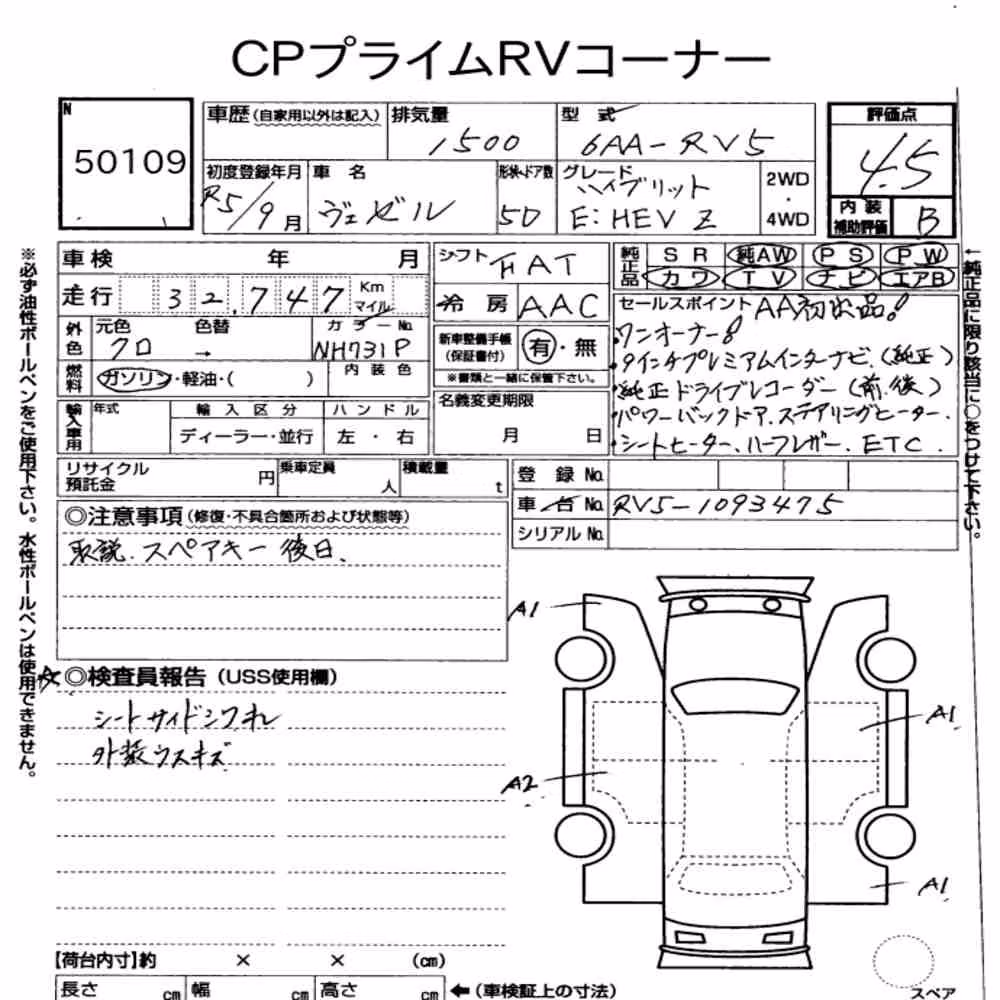 CPプライムRVコーナー
N
50109
車歴(自家用以外は記入) 排気量 1500 型式 6AA-RV5
初度登録年月 R5/9月 車名 ヴェゼル 形状・ドア数 5D グレード ハイブリット E:HEV Z 2WD 4WD
評価点 4.5
内装補助評価 B
車検 年 月
走行 32,747 Km マイル
シフト FAT
冷房 AAC
純正品 SR 純AW PS PW
カワ TV ナビ エアB
外色 元色 クロ 色替 → カラーNo. NH731P
燃料 ガソリン・軽油・( ) 内装色
新車整備手帳(保証書付) 有・無
※書類と一緒に保管下さい。
セールスポイント AA初出品!
ワンオーナー!
9インチプレミアムインターナビ(純正)
純正ドライブレコーダー(前.後)
パワーバックドア.ステアリングヒーター.
シートヒーター.ハーフレザー.ETC.
輸入車用 年式 輸入区分 ハンドル
ディーラー・並行 左・右
名義変更期限
月 日
リサイクル預託金 円 乗車定員 人 積載量 t
登録No.
車台No. RV5-1093475
シリアルNo.
◎注意事項(修復・不具合箇所および状態等)
取説.スペアキー後日.
◎検査員報告(USS使用欄)
シートサイドシワオレ
外装ウスキズ
A1
A1
A2
A1
スペア
【荷台内寸】約 × × (cm)
長さ cm 幅 cm 高さ cm ←(車検証上の寸法)
※必ず油性ボールペンをご使用下さい。水性ボールペンは使用できません。
←純正品に限り該当に○をつけて下さい。